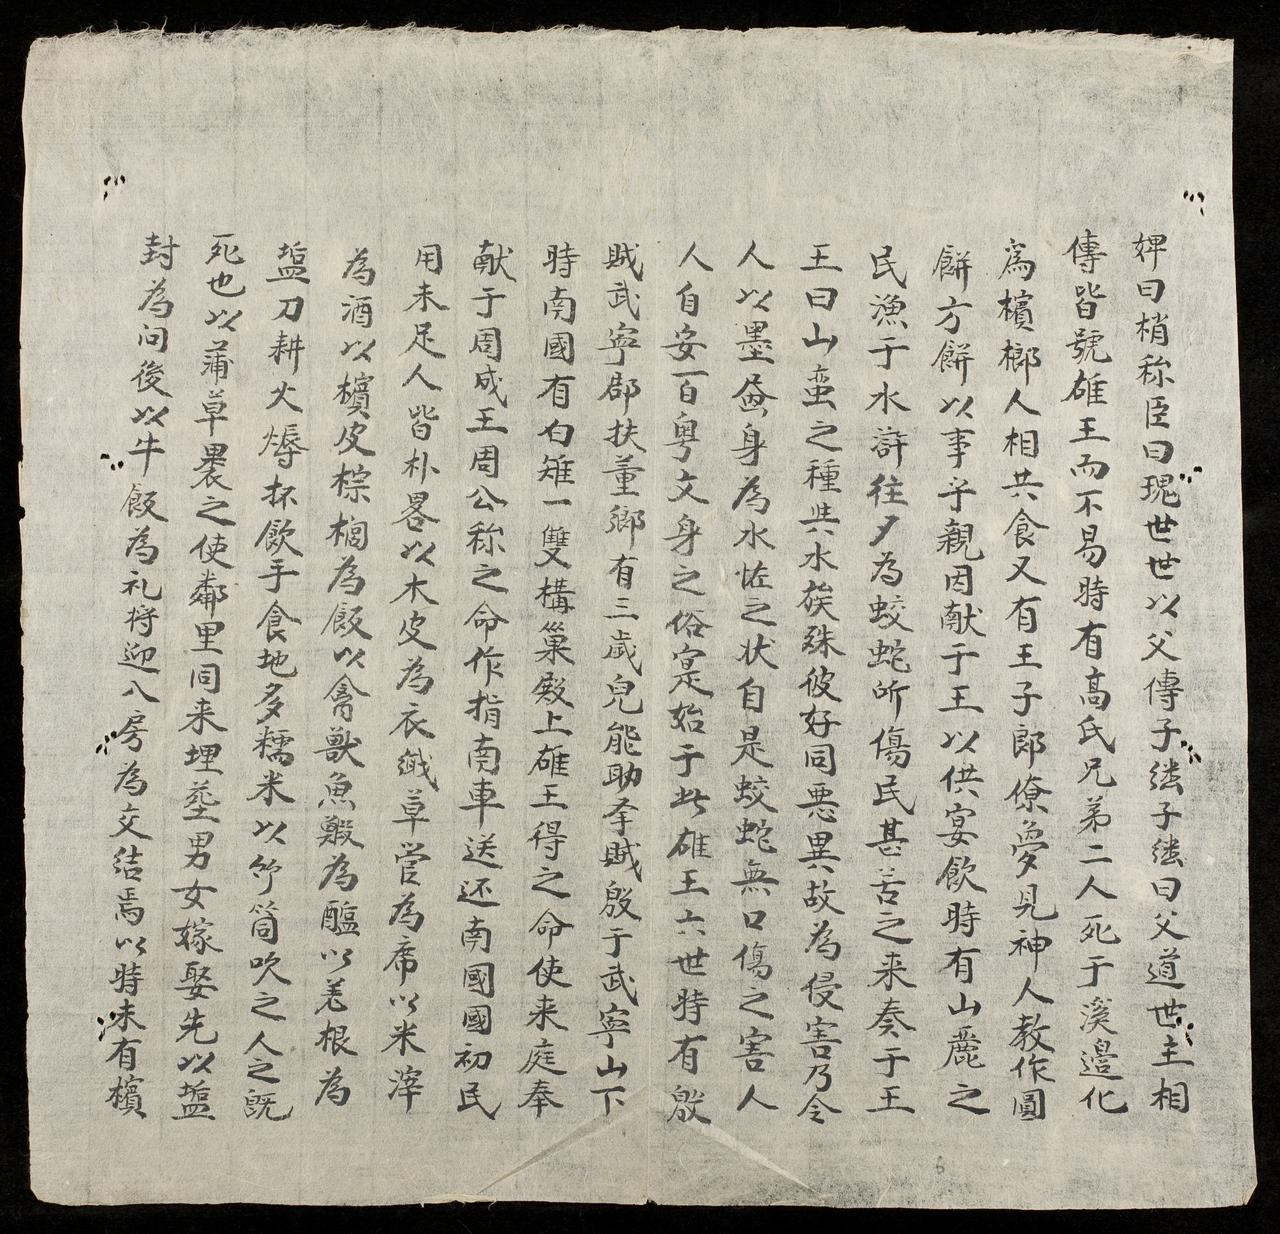 婢曰梢称臣曰瑰世世以父傳子継子継曰父道世主相
傳皆號雄王而不易時有高氏兄弟二人死于溪邉化
爲檳榔人相共食又有王子郎僚夢見神人教作圓
餅方餅以事乎親因献于王以供宴飲時有山麓之
民漁于水滸徃夕為蛟蛇所傷民甚苦之来奏于王
王曰山蛮之種共水族殊彼好同悪異故為侵害乃令
人以墨畫身為水恠之状自是蛟蛇無口傷之害人
人自安百粤文身之俗寔始于此雄王六世時有殷
賊武寧郡扶董鄉有三歲兒能助李賊殷于武寧山下
時南國有白雉一雙構巢殿上雄王得之命使来庭奉
献于周成王周公称之命作指南車送还南國國初民
用未足人皆朴畧以木皮為衣織草営為席以米滓
為酒以檳皮棕榈為飯以禽獸魚鰕為醢以羌根為
塩刀耕火耨杯飲手食地多糯米以竹筒吹之人之既
死也以蒲草褁之使鄰里同来埋塟男女嫁娶先以塩
封為问後以牛飯為礼将迎入房為交结焉以時未有檳